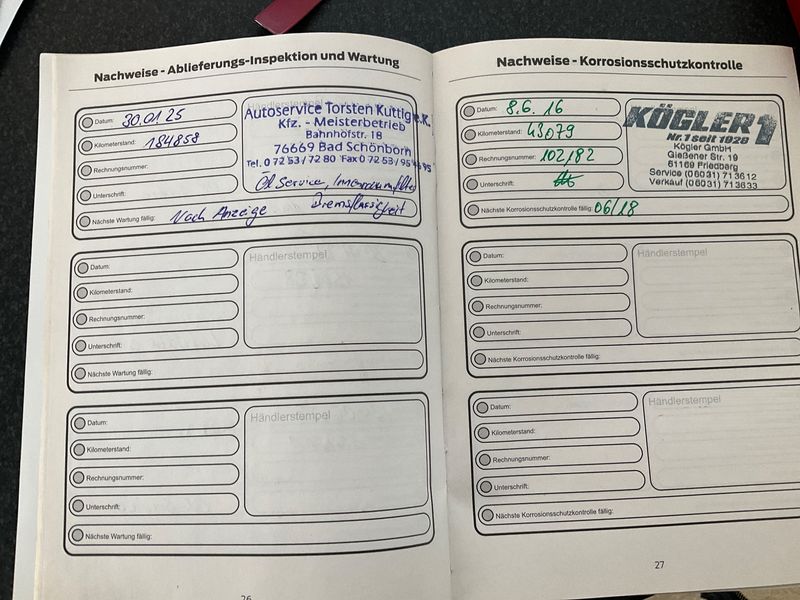 Nachweise - Ablieferungs-Inspektion und Wartung
Datum: 30.01.25
Kilometerstand: 184858
Rechnungsnummer:
Unterschrift:
Nächste Wartung fällig: Nach Anzeige
Händlerstempel
Autoservice Torsten Kuttig e.K.
Kfz. - Meisterbetrieb
Bahnhofstr. 18
76669 Bad Schönborn
Tel. 0 72 53 / 72 80 Fax 0 72 53 / 95 46 95
Öl Service, Innenraumfilter
Bremsflüssigkeit
Datum:
Kilometerstand:
Rechnungsnummer:
Unterschrift:
Nächste Wartung fällig:
Händlerstempel
Datum:
Kilometerstand:
Rechnungsnummer:
Unterschrift:
Nächste Wartung fällig:
Händlerstempel
26
Nachweise - Korrosionsschutzkontrolle
Datum: 8.6.16
Kilometerstand: 43079
Rechnungsnummer: 102/82
Unterschrift:
Nächste Korrosionsschutzkontrolle fällig: 06/18
KÖGLER 1
Nr. 1 seit 1928
Kögler GmbH
Gießener Str. 19
61169 Friedberg
Service (06031) 713612
Verkauf (06031) 713633
Datum:
Kilometerstand:
Rechnungsnummer:
Unterschrift:
Nächste Korrosionsschutzkontrolle fällig:
Händlerstempel
Datum:
Kilometerstand:
Rechnungsnummer:
Unterschrift:
Nächste Korrosionsschutzkontrolle fällig:
Händlerstempel
27